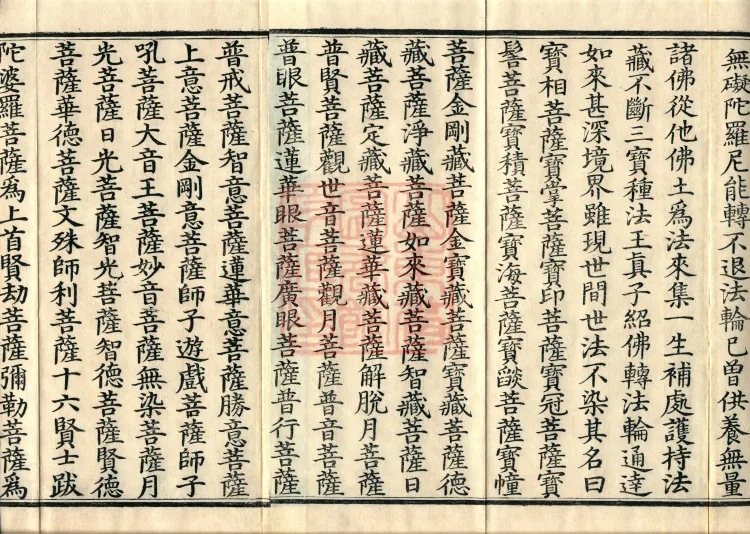 無礙陀羅尼能轉不退法輪已曾供養無量
諸佛從他佛土爲法來集一生補處護持法
藏不斷三寶種法王真子紹佛轉法輪通達
如來甚深境界雖現世間世法不染其名曰
寶相菩薩寶掌菩薩寶印菩薩寶冠菩薩寶
髻菩薩寶積菩薩寶海菩薩寶燄菩薩寶幢
菩薩金剛藏菩薩金寶藏菩薩寶藏菩薩德
藏菩薩淨藏菩薩如來藏菩薩智藏菩薩日
藏菩薩定藏菩薩蓮華藏菩薩解脫月菩薩
普賢菩薩觀世音菩薩觀月菩薩普音菩薩
普眼菩薩蓮華眼菩薩廣眼菩薩普行菩薩
普戒菩薩智意菩薩蓮華意菩薩勝意菩薩
上意菩薩金剛意菩薩師子遊戲菩薩師子
吼菩薩大音王菩薩妙音菩薩無染菩薩月
光菩薩日光菩薩智光菩薩智德菩薩賢德
菩薩華德菩薩文殊師利菩薩十六賢士跋
陀婆羅菩薩爲上首賢劫菩薩彌勒菩薩爲